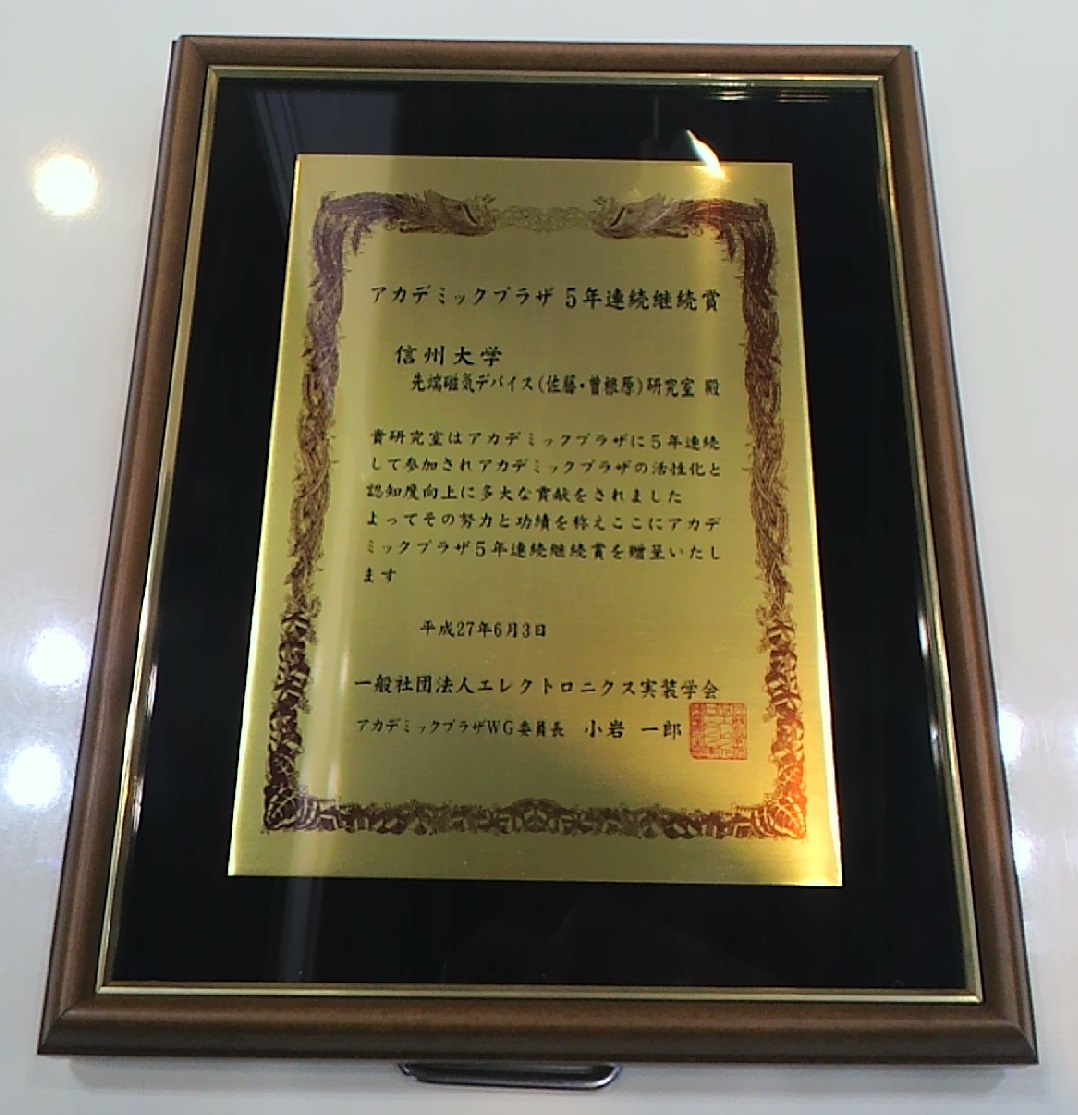 アカデミックプラザ 5年連続継続賞
信州大学
先端磁気デバイス(佐藤・曽根原)研究室 殿
貴研究室はアカデミックプラザに5年連続
して参加されアカデミックプラザの活性化と
認知度向上に多大な貢献をされました
よってその努力と功績を称えここにアカデ
ミックプラザ5年連続継続賞を贈呈いたし
ます
平成27年6月3日
一般社団法人エレクトロニクス実装学会
アカデミックプラザWG委員長 小岩 一郎